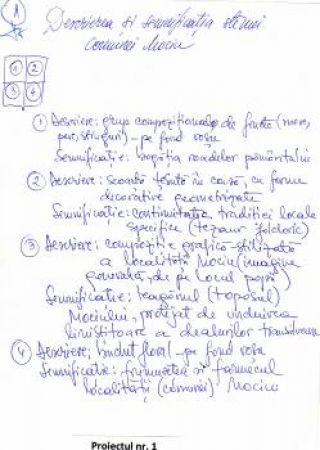 1
Descrierea și semnificația stemei
comunei Mociu
1 2
3 4
1 Descriere: grup compozițional de fructe (mere,
pere, struguri) - pe fond roșu
Semnificație: bogăția roadelor pământului
2 Descriere: scoarță țesută în casă, cu forme
decorative geometrizate
Semnificație: continuitatea tradiției locale
specifice (tezaur folcloric)
3 Descriere: compoziție grafică-stilizată
a localității Mociu (imagine
generală, de pe Locul popii)
Semnificație: (toposul)
Mociului, protejat de unduirea
liniștitoare a dealurilor transilvane
4 Descriere: floral - pe fond roșu
Semnificație: frumusețea și farmecul
localității (comunei) Mociu
Proiectul nr. 1